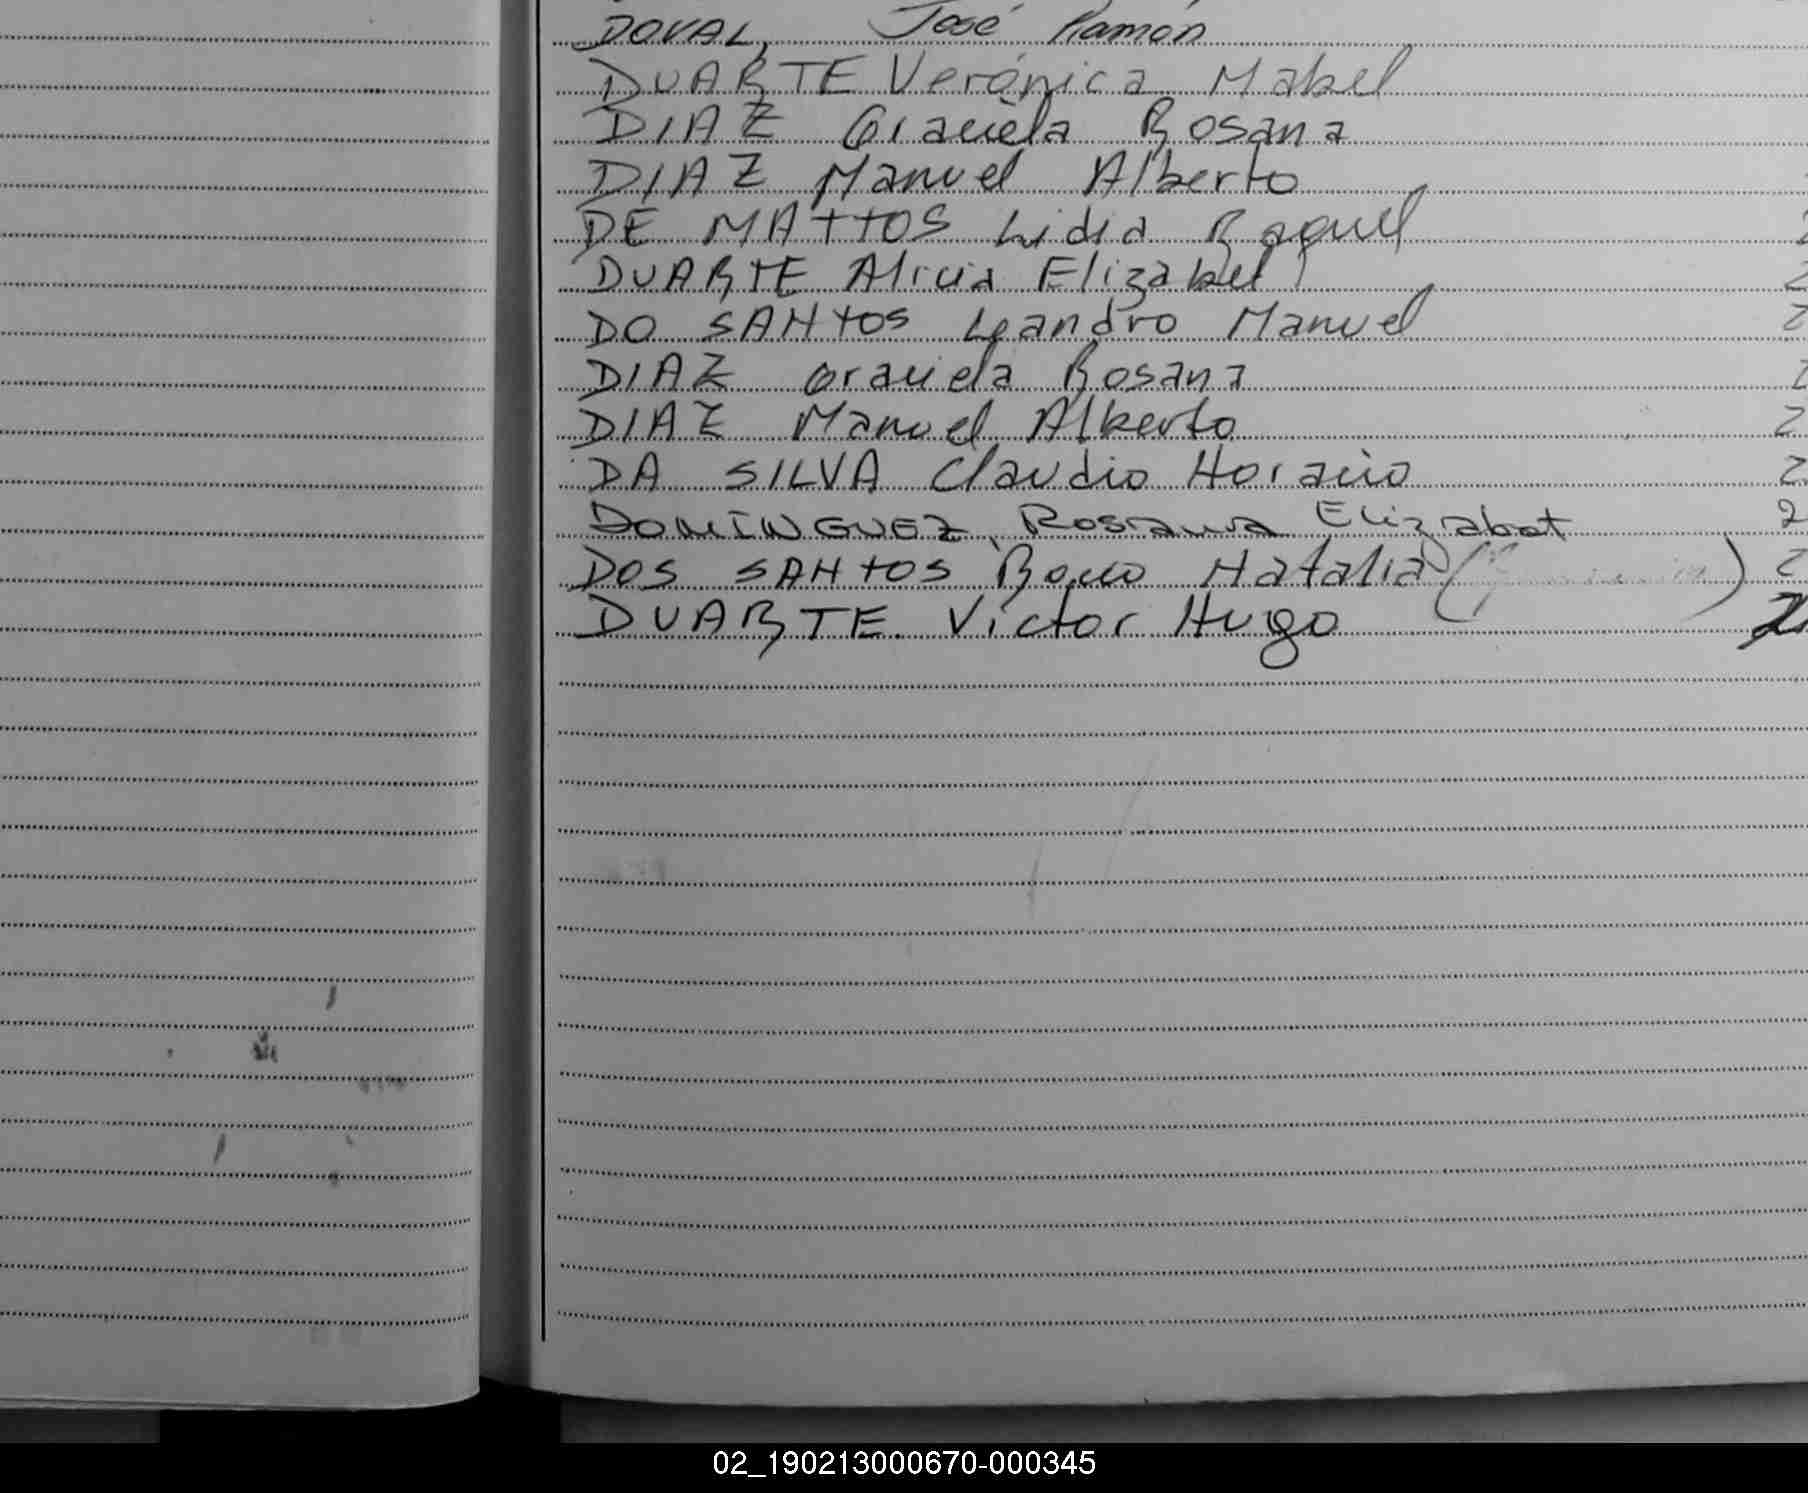 DOVAL, José Ramón
DUARTE Verónica Mabel
DIAZ Graciela Rosana
DIAZ Manuel Alberto
DE MATTOS Lidia Raquel
DUARTE Alicia Elizabel 2
DO SANtos Leandro Manuel 2
DIAZ Graciela Rosana 2
DIAZ Manuel Alberto 2
DA SILVA Claudio Horacio 2
DOMÍNGUEZ, Rosana Elizabet 2
DOS SANtos Natalia 2
DUARTE. Victor Hugo 2
02_190213000670-000345